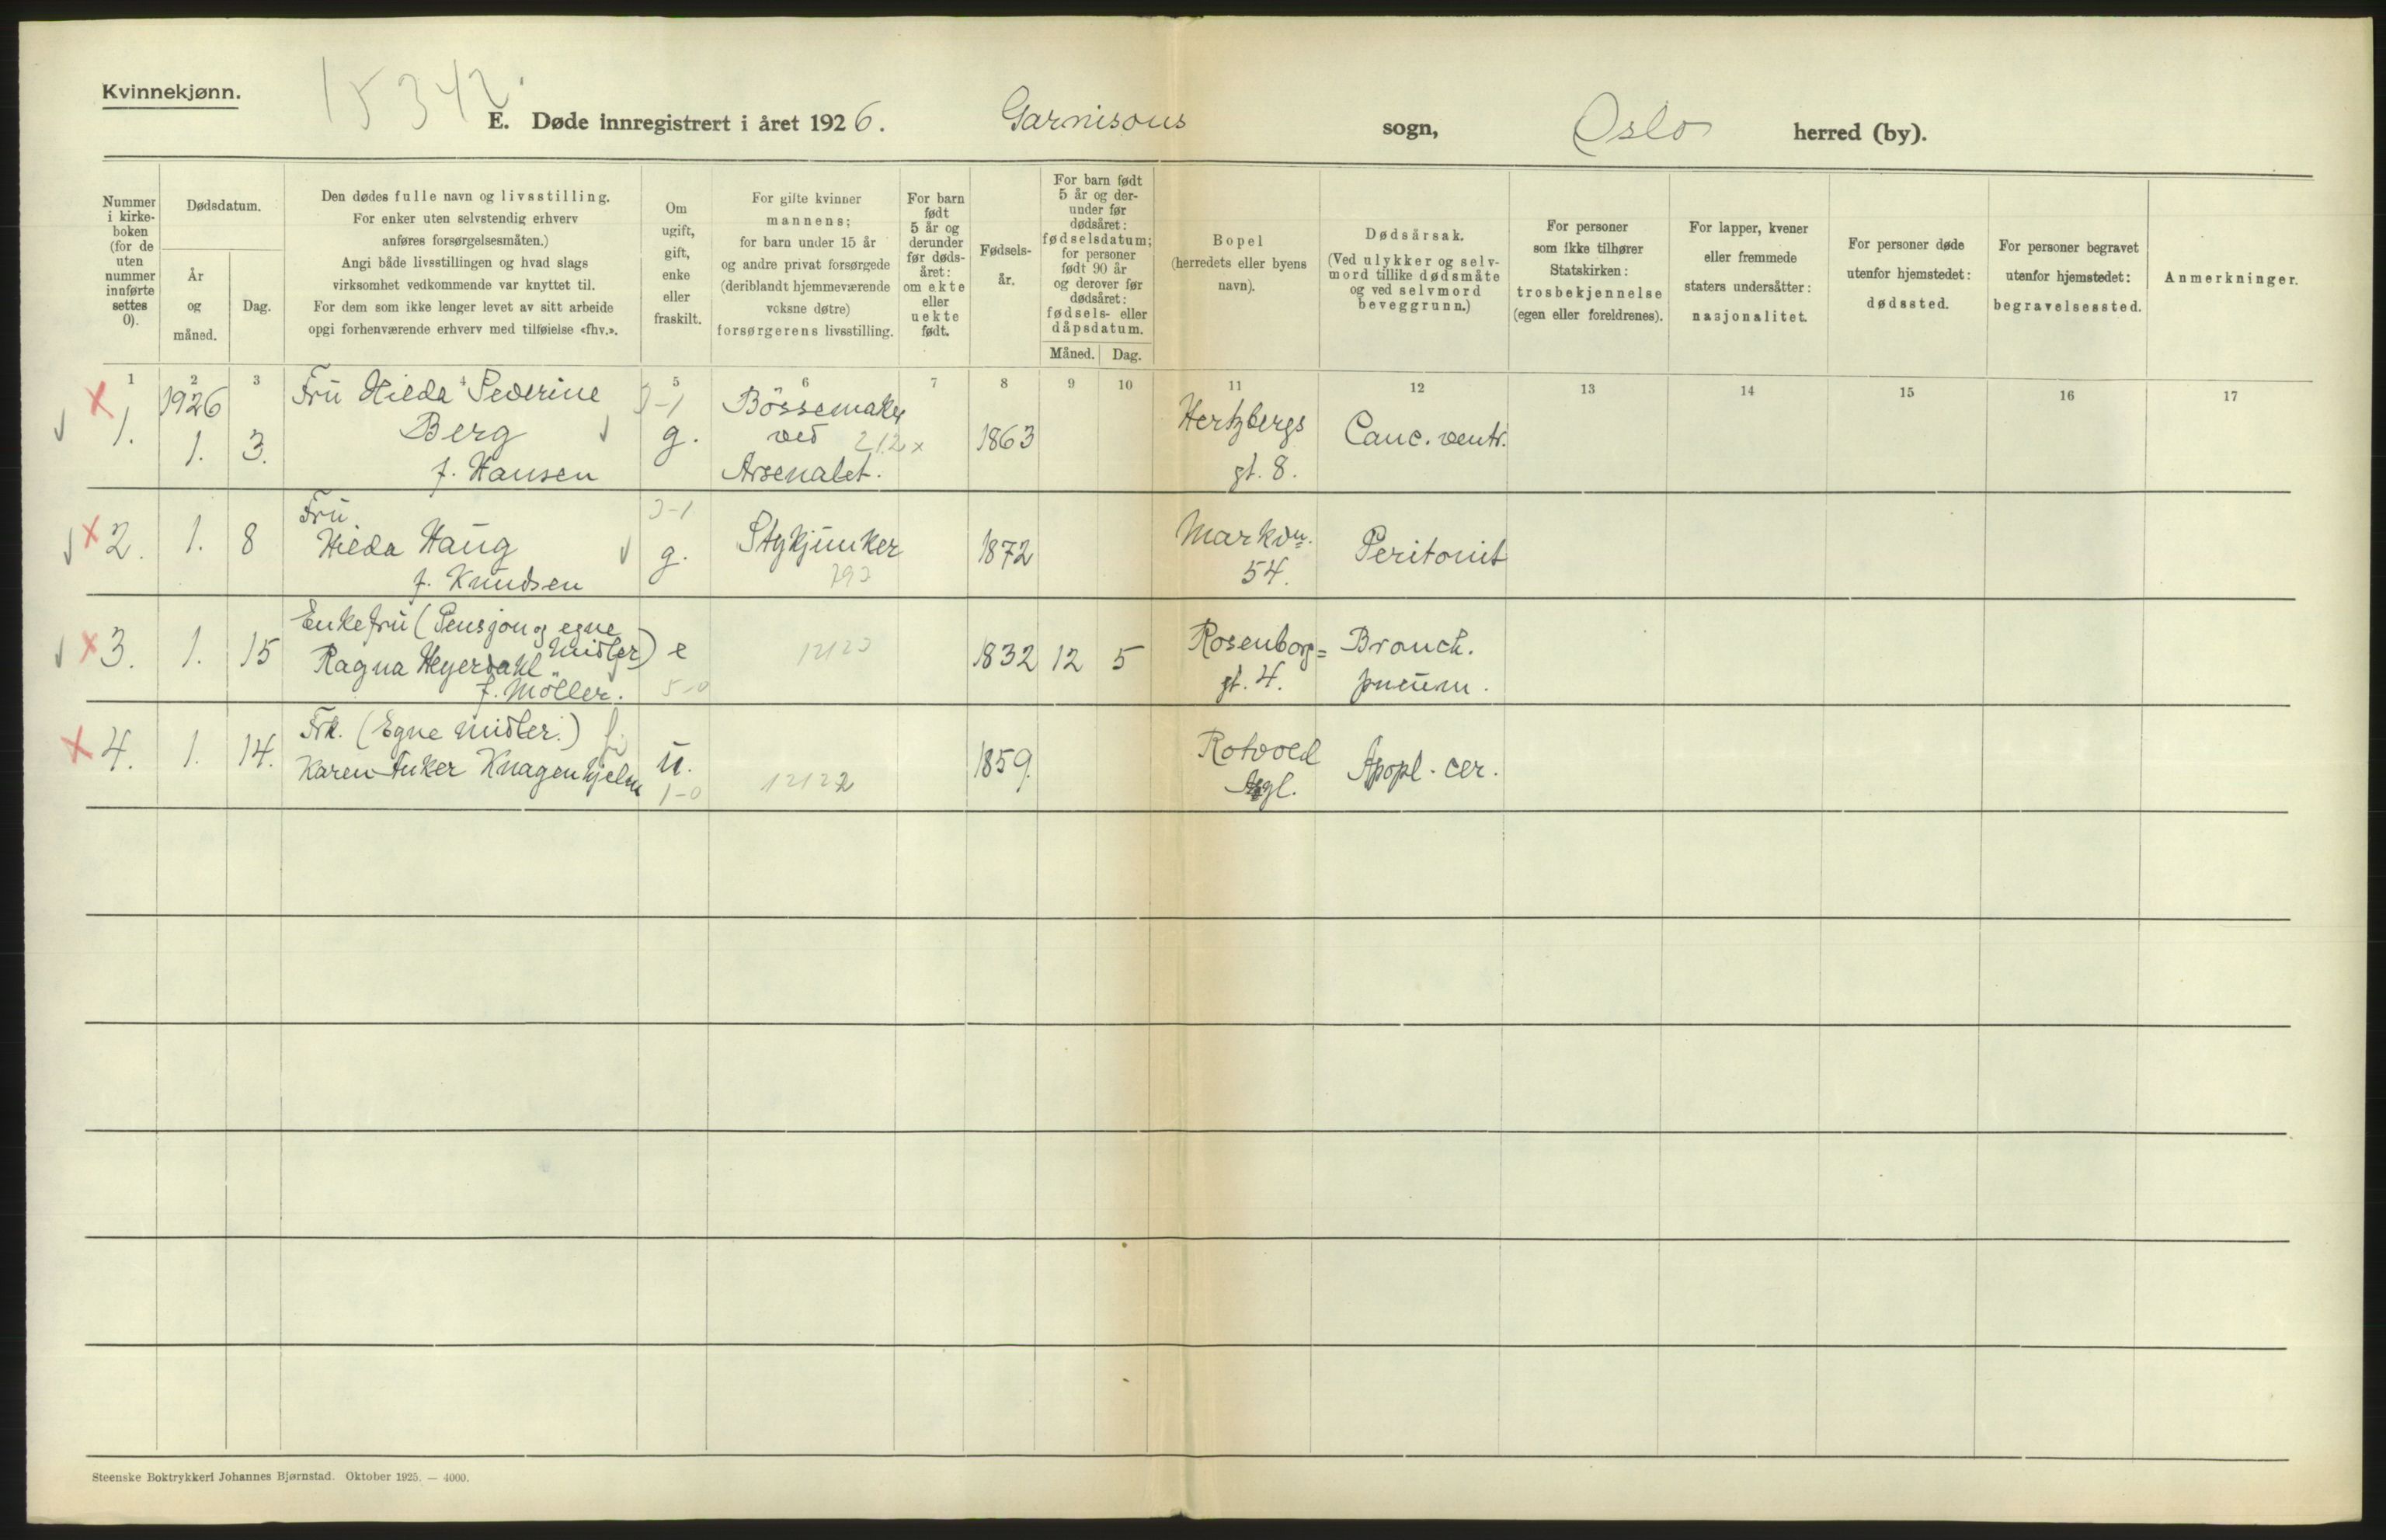 Kvinnekjønn.
15342.
E. Døde innregistrert i året 1926. Garnisons sogn, Oslo herred (by).
Nummer i kirke-boken (for de uten nummer innførte settes 0).
Dødsdatum.
År og måned.
Dag.
Den dødes fulle navn og livsstilling.
For enker uten selvstendig erhverv
anføres forsørgelsesmåten.)
Angi både livsstillingen og hvad slags
virksomhet vedkommende var knyttet til.
For dem som ikke lenger levet av sitt arbeide
opgi forhenværende erhverv med tilføielse «fhv.».
Om
ugift,
gift,
enke
eller
fraskilt.
For gifte kvinner
mannens;
for barn under 15 år
og andre privat forsørgede
(deriblandt hjemmeværende
voksne døtre)
forsørgerens livsstilling.
For barn
født
5 år og
derunder
før døds-
året:
om ekte
eller
uekte
født.
Fødsels-
år.
For barn født
5 år og der-
under før
dødsåret:
fødselsdatum;
for personer
født 90 år
og derover før
dødsåret:
fødsels- eller
dåpsdatum.
Måned. Dag.
Bopel
(herredets eller byens
navn).
Dødsårsak.
(Ved ulykker og selv-
mord tillike dødsmåte
og ved selvmord
beveggrunn.)
For personer
som ikke tilhører
Statskirken:
trosbekjennelse
(egen eller foreldrenes).
For lapper, kvener
eller fremmede
staters undersåtter:
nasjonalitet.
For personer døde
utenfor hjemstedet:
dødssted.
For personer begravet
utenfor hjemstedet:
begravelsessted.
Anmerkninger.
1 2 3 4 5 6 7 8 9 10 11 12 13 14 15 16 17
1. 1926 1. 3.
Fru Hilda Pederine
Berg
f. Hansen
g.
Bössemaker
ved 212 x
Arsenalet.
1863
Hertzbergs
gt. 8.
Canc. ventr.
2. 1. 8
Fru
Hilda Haug
f. Knudsen
g.
Stykjunker
1872
Markvn.
54.
Peritonit
3. 1. 15
Enkefru (Pensjon og egne
midler)
Ragna Heyerdahl
f. Möller.
e
5-0
1832 12 5
Rosenborg=
gt. 4.
Bronch.
pneum.
4. 1. 14.
Frk. (Egne midler.)
Karen Anker Knagenhjelm
u.
1-0
12122
1859.
Rotvold
Asyl.
Apopl. cer.
Steenske Boktrykkeri Johannes Bjørnstad. Oktober 1925. — 4000.